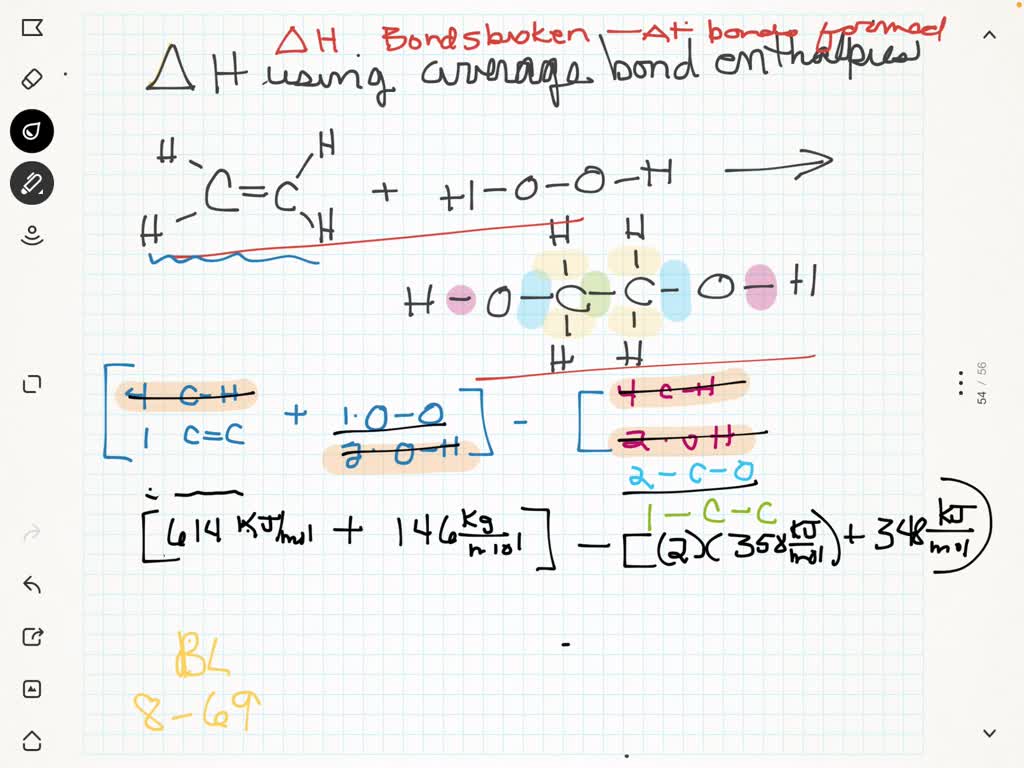 ΔH Bonds broken — ΔH bonds formed
ΔH using average bond enthalpies
H H
C=C + H-O-O-H →
H H
H H
H-O-C-C-O-H
H H
[4 C-H + 1·O-O] - [4 C-H
1 C=C 2·O-H 2·OH
2-C-O
1-C-C
[614 KJ/mol + 146 Kg/mol] - [(2)(358 KJ/mol) + 348 KJ/mol)
BL
8-69
54 / 56